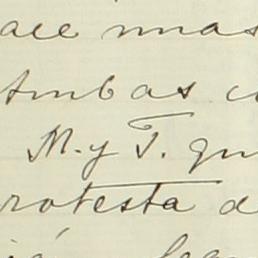 ace unas
Ambas c
M. y T. qu
rotesta d